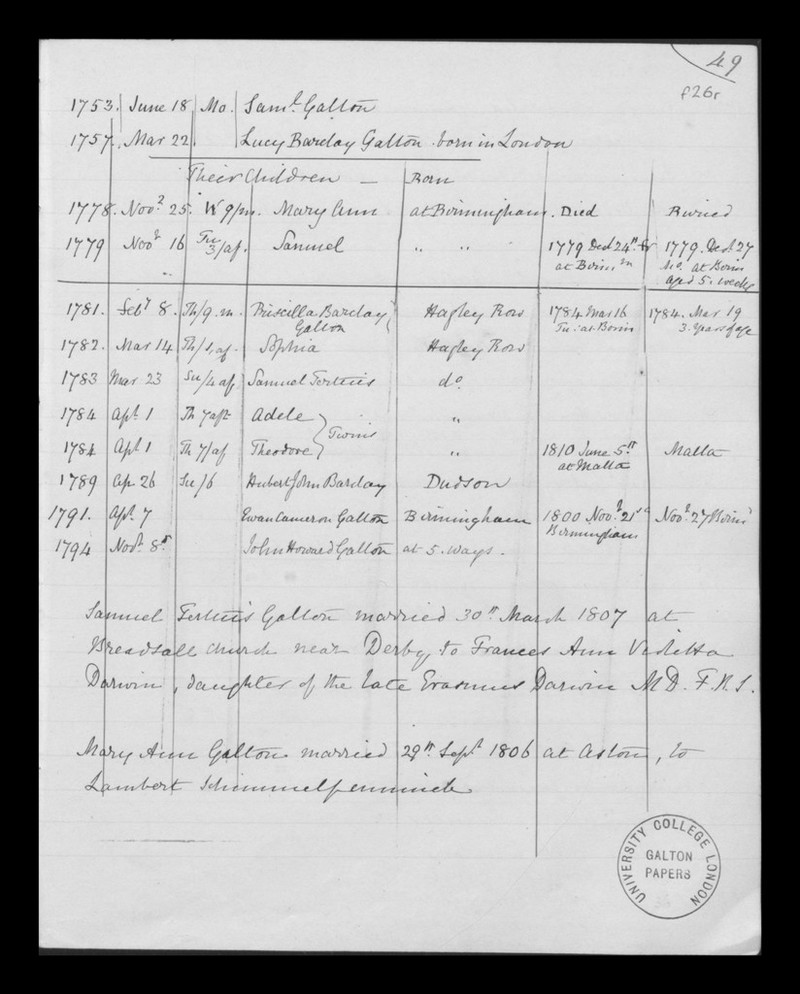 49
f26r
1753. June 18 Mo. Saml. Galton
1757. Mar 22. Lucy Barclay Galton born in London
Their Children — Born
1778. Novr 25. W 9/m. Mary Ann at Birmingham. Died Buried
1779 Novr 16 Tu 3/af. Samuel " " " 1779 Decr 24th Fr at Birmm 1779. Dect 27 Mo. at Birm aged 5. weeks
1781. Feby 8. Th/9.m. Priscilla Barclay Galton Hagley Row 1784 Mar 16 Tu: at Birm 1784. Mar 19 3. Years of age
1782. Mar 14 Th/1,af. Sophia Hagley Row
1783 Mar 23 Su/4 af Samuel Tertius do.
1784 Apl. 1 Th 7 aft Adele "
Twins
1784 Apl 1 Th 7/af Theodore " 1810 June 5th at Malta Malta
1789 Ap. 26 Su/6 Hubert John Barclay Dudson
1791. Apl. 7 Ewan Cameron Galton Birmingham 1800 Novr 21st Birmingham Novr 27 Birm
1794 Novr. 8th John Howard Galton at 5. Ways.
Samuel Tertius Galton married 30th March 1807 at
Breadsall church near Derby, to Frances Ann Violetta
Darwin, daughter of the late Erasmus Darwin M.D. F.R.S.
Mary Ann Galton married 29th. Sept 1806 at Aston, to
Lambert Schimmelpenninck
UNIVERSITY COLLEGE LONDON
GALTON
PAPERS